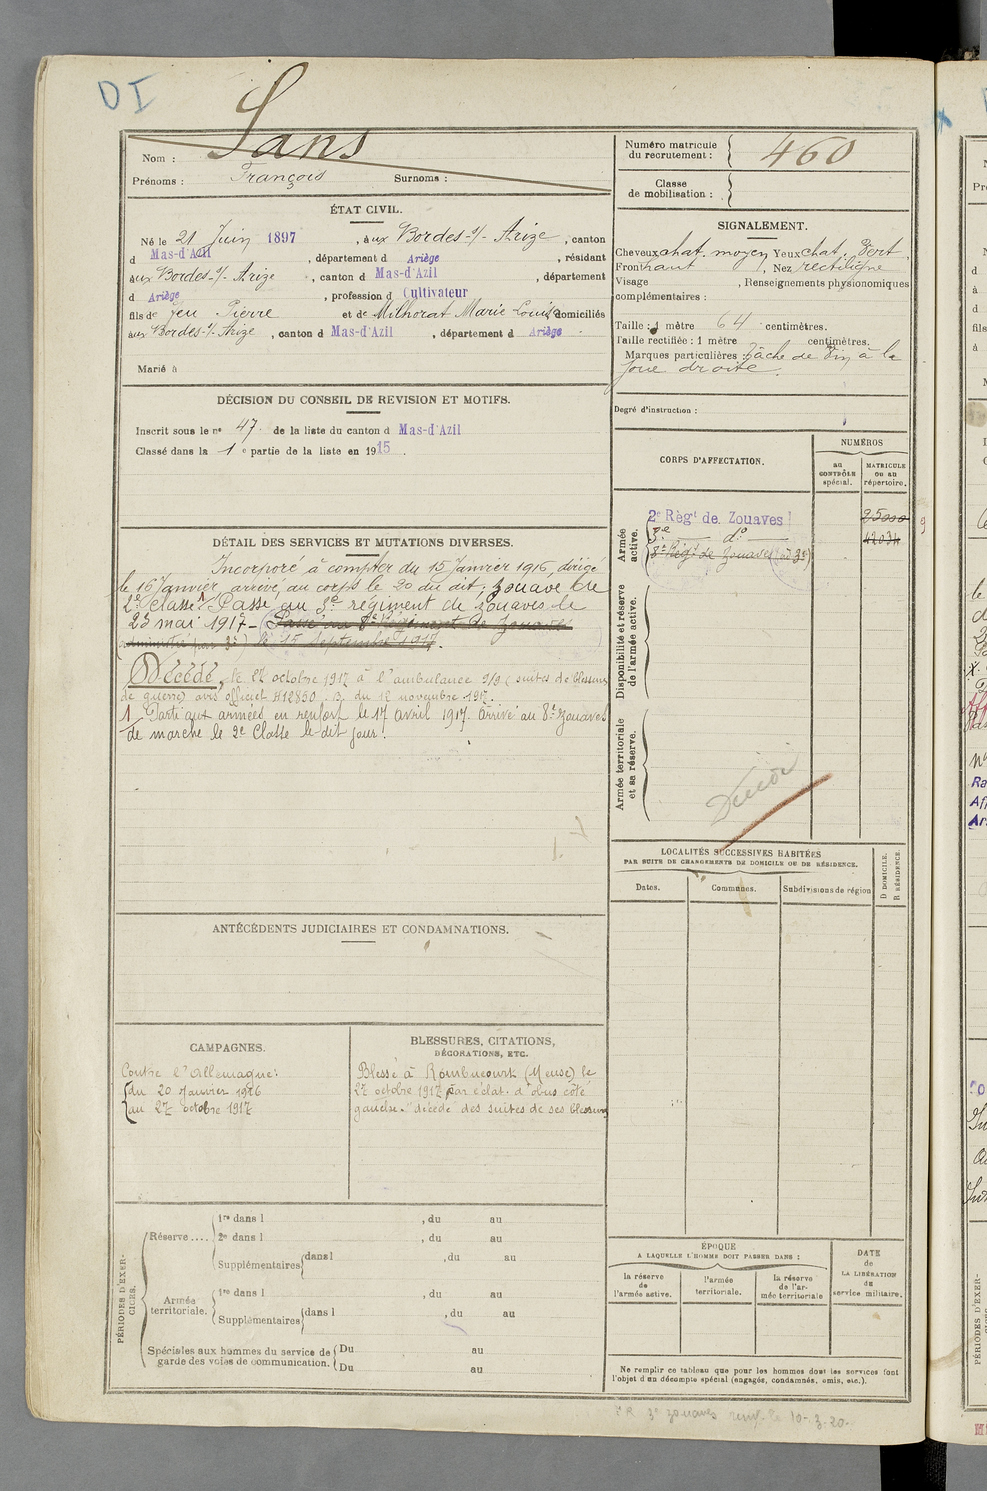 DI
Nom : Sans
Prénoms : François Surnoms :
Numéro matricule
du recrutement : 460
Classe
de mobilisation :
ÉTAT CIVIL.
Né le 21 Juin 1897, à ux Bordes-s/-Arize, canton
d Mas-d'Azil, département d Ariège, résidant
à ux Bordes-s/-Arize, canton d Mas-d'Azil, département
d Ariège, profession d Cultivateur
fils de feu Pierre et de Milhorat Marie Louise domiciliés
à ux Bordes-s/-Arize, canton d Mas-d'Azil, département d Ariège.
Marié à
SIGNALEMENT.
Cheveux chat. moyen Yeux chat. Vert,
Front haut, Nez rectiligne
Visage , Renseignements physionomiques
complémentaires :
Taille : 1 mètre 64 centimètres.
Taille rectifiée : 1 mètre centimètres.
Marques particulières : Tâche de vin à la
joue droite.
Degré d'instruction :
DÉCISION DU CONSEIL DE REVISION ET MOTIFS.
Inscrit sous le n° 47 de la liste du canton d Mas-d'Azil
Classé dans la 1e partie de la liste en 1915.
DÉTAIL DES SERVICES ET MUTATIONS DIVERSES.
Incorporé à compter du 15 Janvier 1916, dirigé
le 16 Janvier, arrivé au corps le 20 du dit, zouave de
2e classe. 1 Passé au 3e régiment de zouaves le
23 mai 1917 - (Passé au 8e Régiment de Zouaves
administré par 3e) le 15 Septembre 1917.
Décédé, le 27 octobre 1917 à l'ambulance 9/9 (suites de blessures
de guerre) avis officiel H12850 . B. du 12 novembre 1917.
1 Parti aux armées en renfort le 17 avril 1917. Arrivé au 8e zouaves
de marche le 2e Classe le dit jour.
CORPS D'AFFECTATION.
NUMÉROS
au
CONTRÔLE
spécial.
MATRICULE
ou au
répertoire.
Armée
active.
2e Règt de Zouaves 25000
3e d° 42034
8e Régt de Zouaves (ad 3e)
Disponibilité et réserve
de l'armée active.
Armée territoriale
et sa réserve.
Décédé
LOCALITÉS SUCCESSIVES HABITÉES
PAR SUITE DE CHANGEMENTS DE DOMICILE OU DE RÉSIDENCE.
Dates.
Communes.
Subdivisions de région
D DOMICILE.
R RÉSIDENCE.
ANTÉCÉDENTS JUDICIAIRES ET CONDAMNATIONS.
CAMPAGNES.
Contre l'Allemagne :
du 20 Janvier 1916
au 27 octobre 1917
BLESSURES, CITATIONS,
DÉCORATIONS, ETC.
Blessé à Rombucourt (Meuse) le
27 octobre 1917 par éclat d'obus côté
gauche." décédé des suites de ses blessures
PÉRIODES D'EXER-
CICES.
Réserve ....
1re dans l , du au
2e dans l , du au
Supplémentaires dans l , du au
Armée
territoriale.
1re dans l , du au
Supplémentaires dans l , du au
Spéciales aux hommes du service de
garde des voies de communication.
Du au
Du au
ÉPOQUE
A LAQUELLE L'HOMME DOIT PASSER DANS :
la réserve
de
l'armée active.
l'armée
territoriale.
la réserve
de l'ar-
mée territoriale
DATE
de
LA LIBÉRATION
DU
service militaire.
Ne remplir ce tableau que pour les hommes dont les services font
l'objet d'un décompte spécial (engagés, condamnés, omis, etc.).
3e zouaves le 10-3-20.